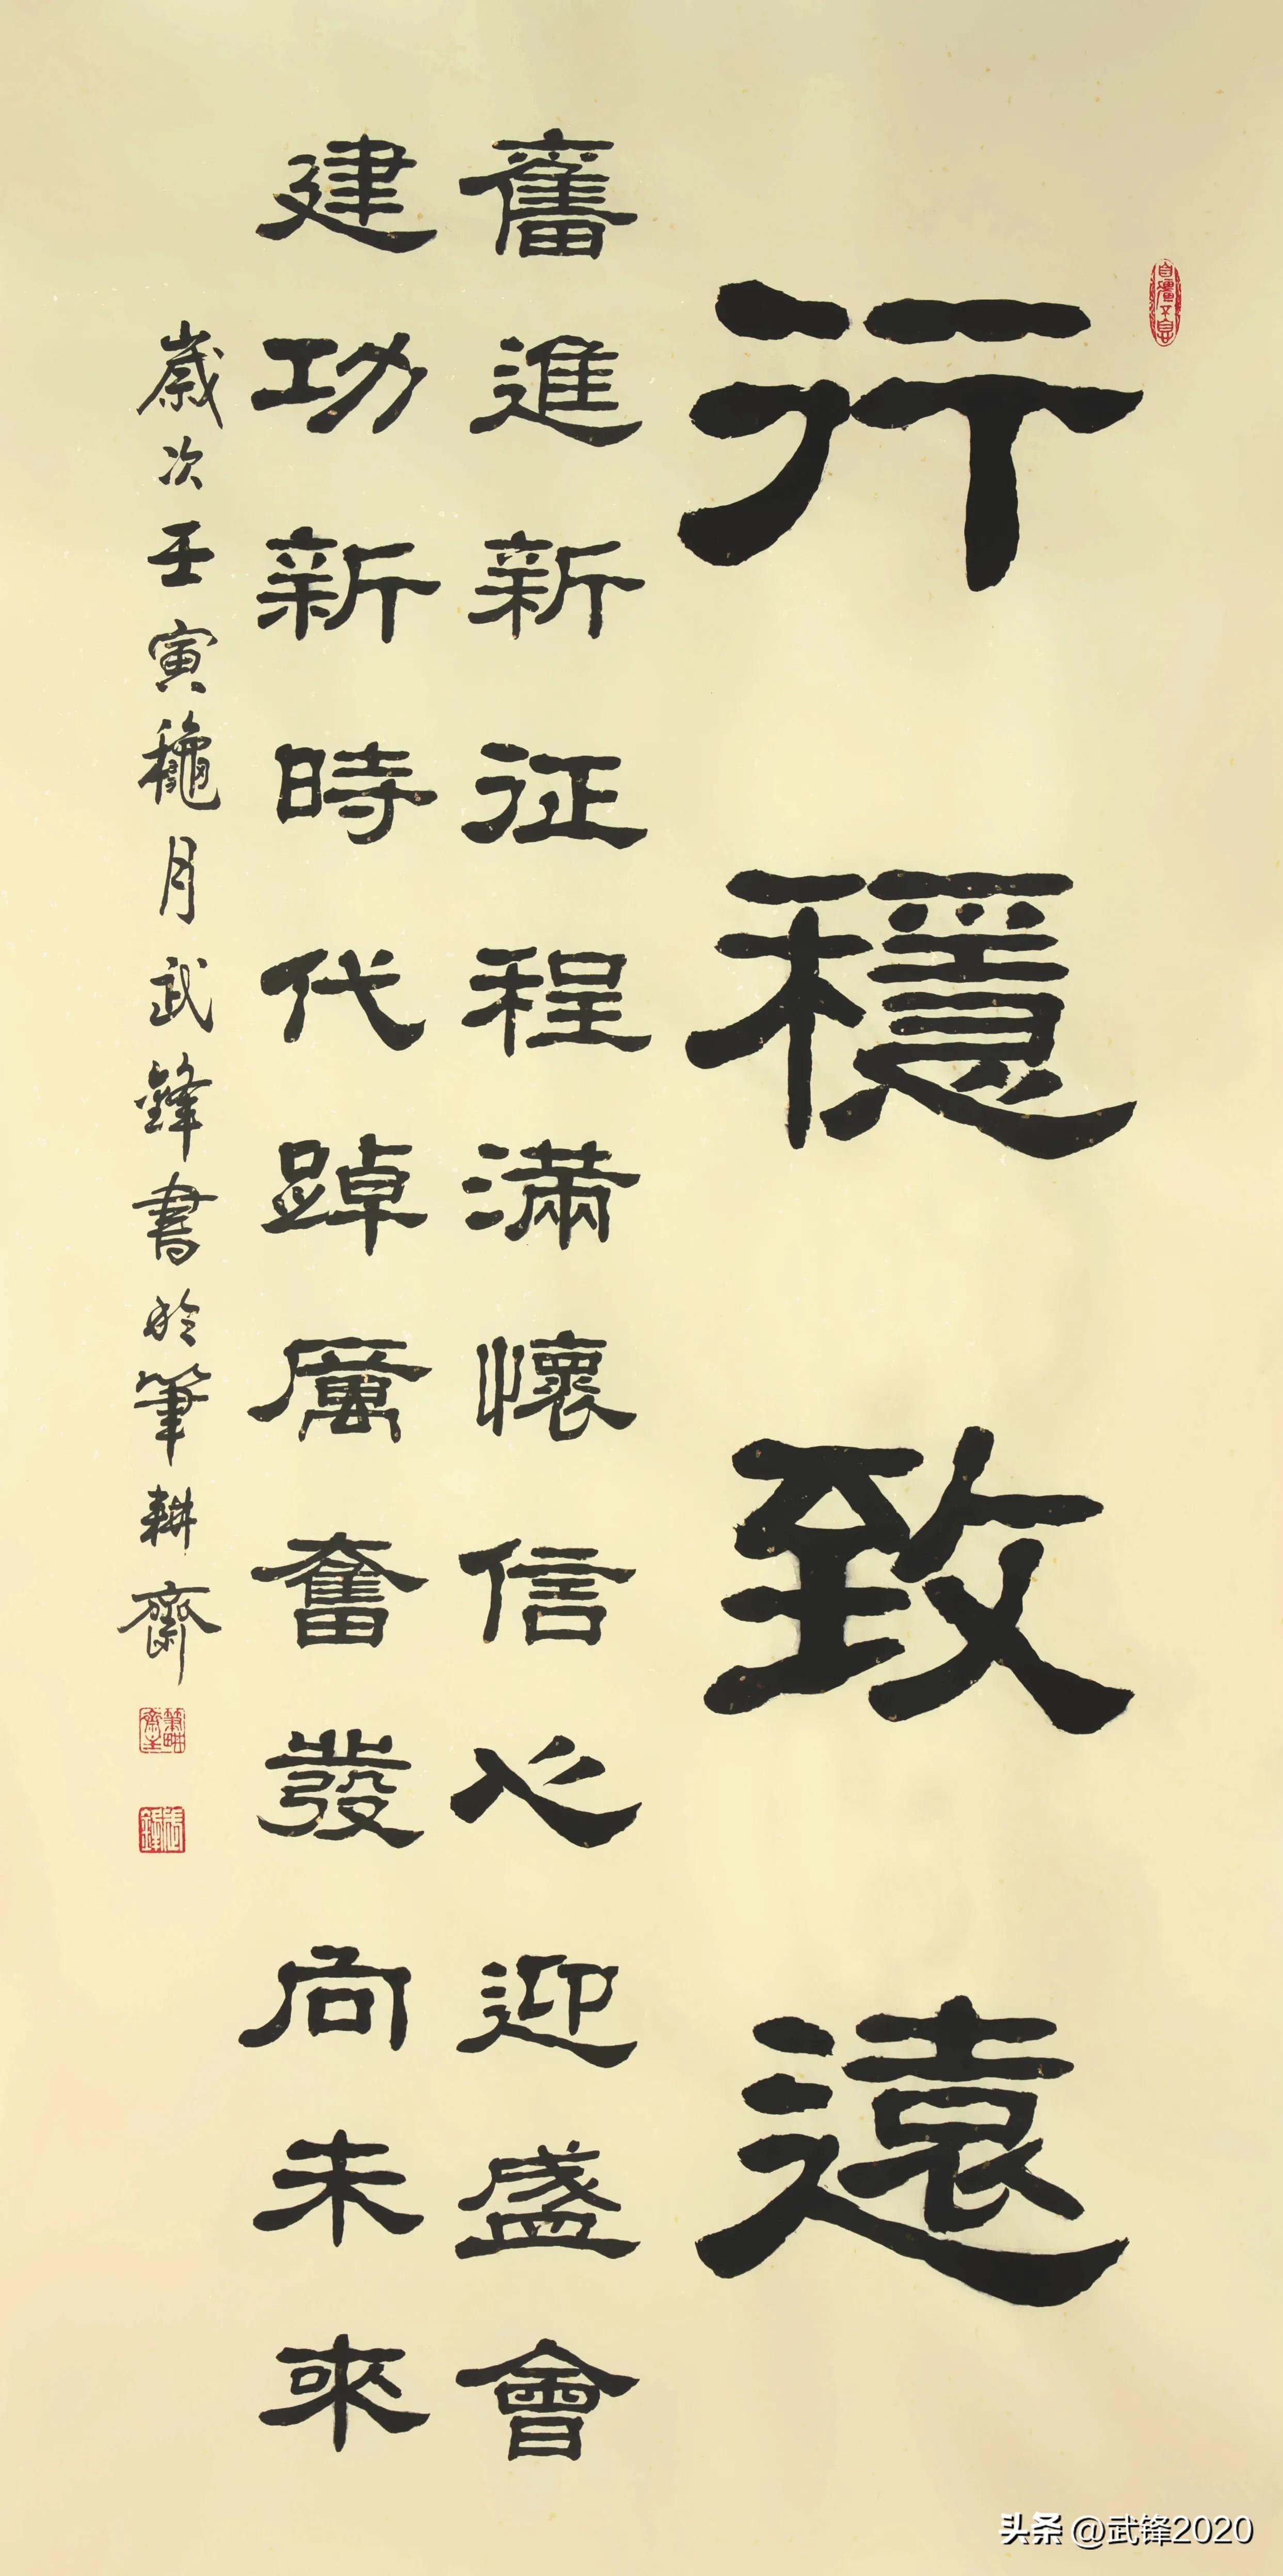 自彊不息
行穩致遠
奮進新征程滿懷信心迎盛會
建功新時代踔厲奮發向未來
歲次壬寅龝月武鋒書於筆耕齋
筆畊齋主
头条 @武锋2020